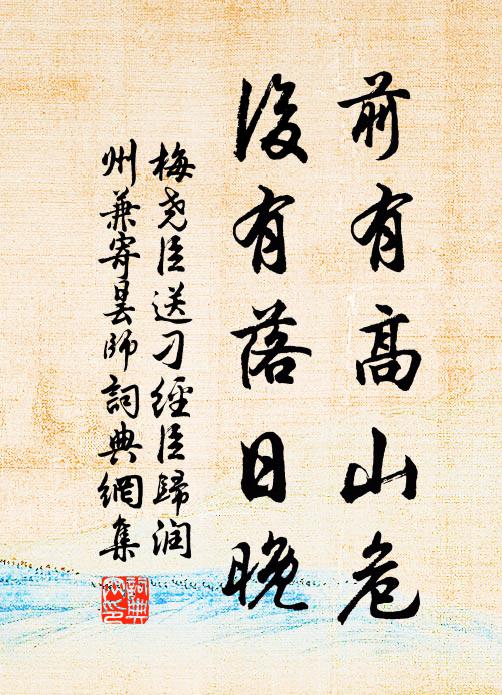 前有高山危
後有落日晚
梅尧臣送刁經臣歸润
州兼寄昙師詞典網集